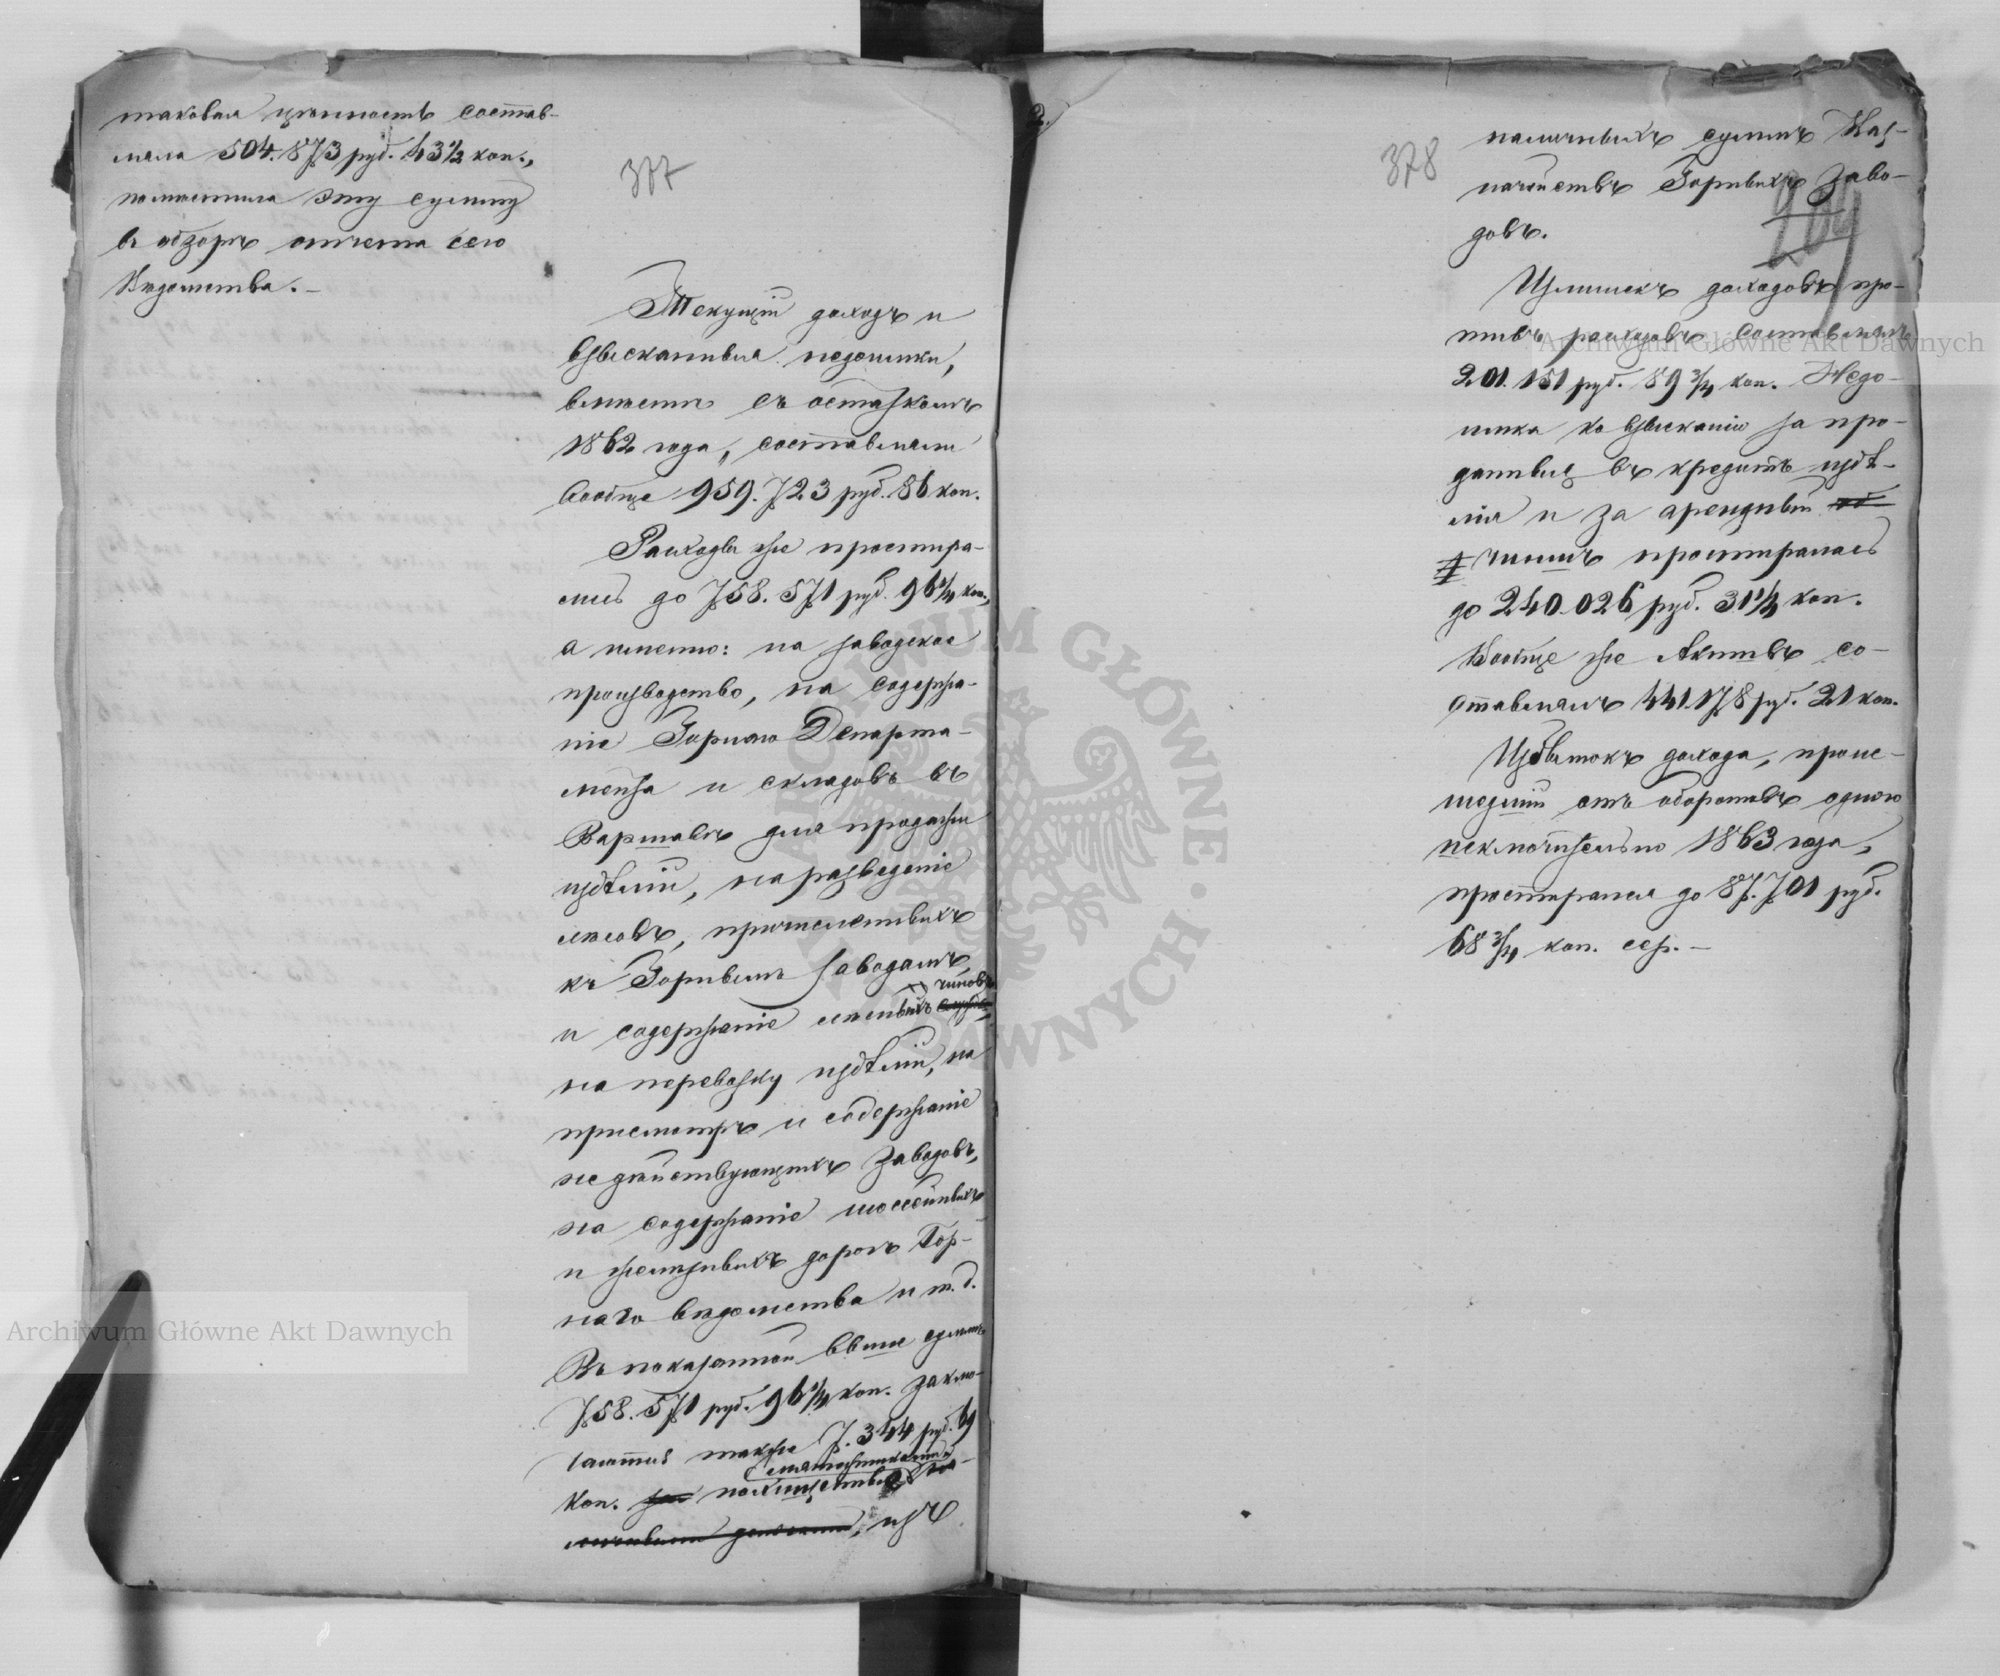 таковая цѣнность состав-
ляла 504.873 руб. 43½ коп.,
помѣстила эту сумму
въ обзорѣ отчета сего
Вѣдомства.—
377
Текущій доходъ и
взысканныя недоимки,
вмѣстѣ съ остаткомъ
1862 года, составляли
вообще 959.723 руб. 86 коп.
Расходы же простира-
лись до 758.571 руб. 96¼ коп.,
а именно: на заводское
производство, на содержа-
ніе Горнаго Департа-
мента и складовъ въ
Варшавѣ для продажи
издѣлій, на разведеніе
лѣсовъ, причисленныхъ
къ Горнымъ заводамъ
и содержаніе лѣсныхъ чиновъ,
на перевозку издѣлій, на
присмотръ и содержаніе
не дѣйствующихъ заводовъ,
на содержаніе шоссейныхъ
и желѣзныхъ дорогъ Гор-
наго вѣдомства и т. д.
Въ показанной выше суммѣ
758.571 руб. 96¼ коп. заклю-
чаются также 7.344 руб. 69
коп. похищенные мятежниками
изъ
2.
378
209
наличныхъ суммъ Каз-
начействъ Горныхъ заво-
довъ.
Излишекъ доходовъ про-
тивъ расходовъ составлялъ
201.151 руб. 89¾ коп. Недо-
имка ко взысканію за про-
данныя въ кредитъ издѣ-
лія и за арендный
чиншъ простиралась
до 240.026 руб. 31¼ коп.
Вообще же Активъ со-
ставлялъ 441.178 руб. 21 коп.
Избытокъ дохода, проис-
шедшій отъ оборотовъ одного
исключительно 1863 года,
простирался до 87.701 руб.
68¾ коп. сер.—
Archiwum Główne Akt Dawnych
Archiwum Główne Akt Dawnych
ARCHIWUM GŁÓWNE AKT DAWNYCH